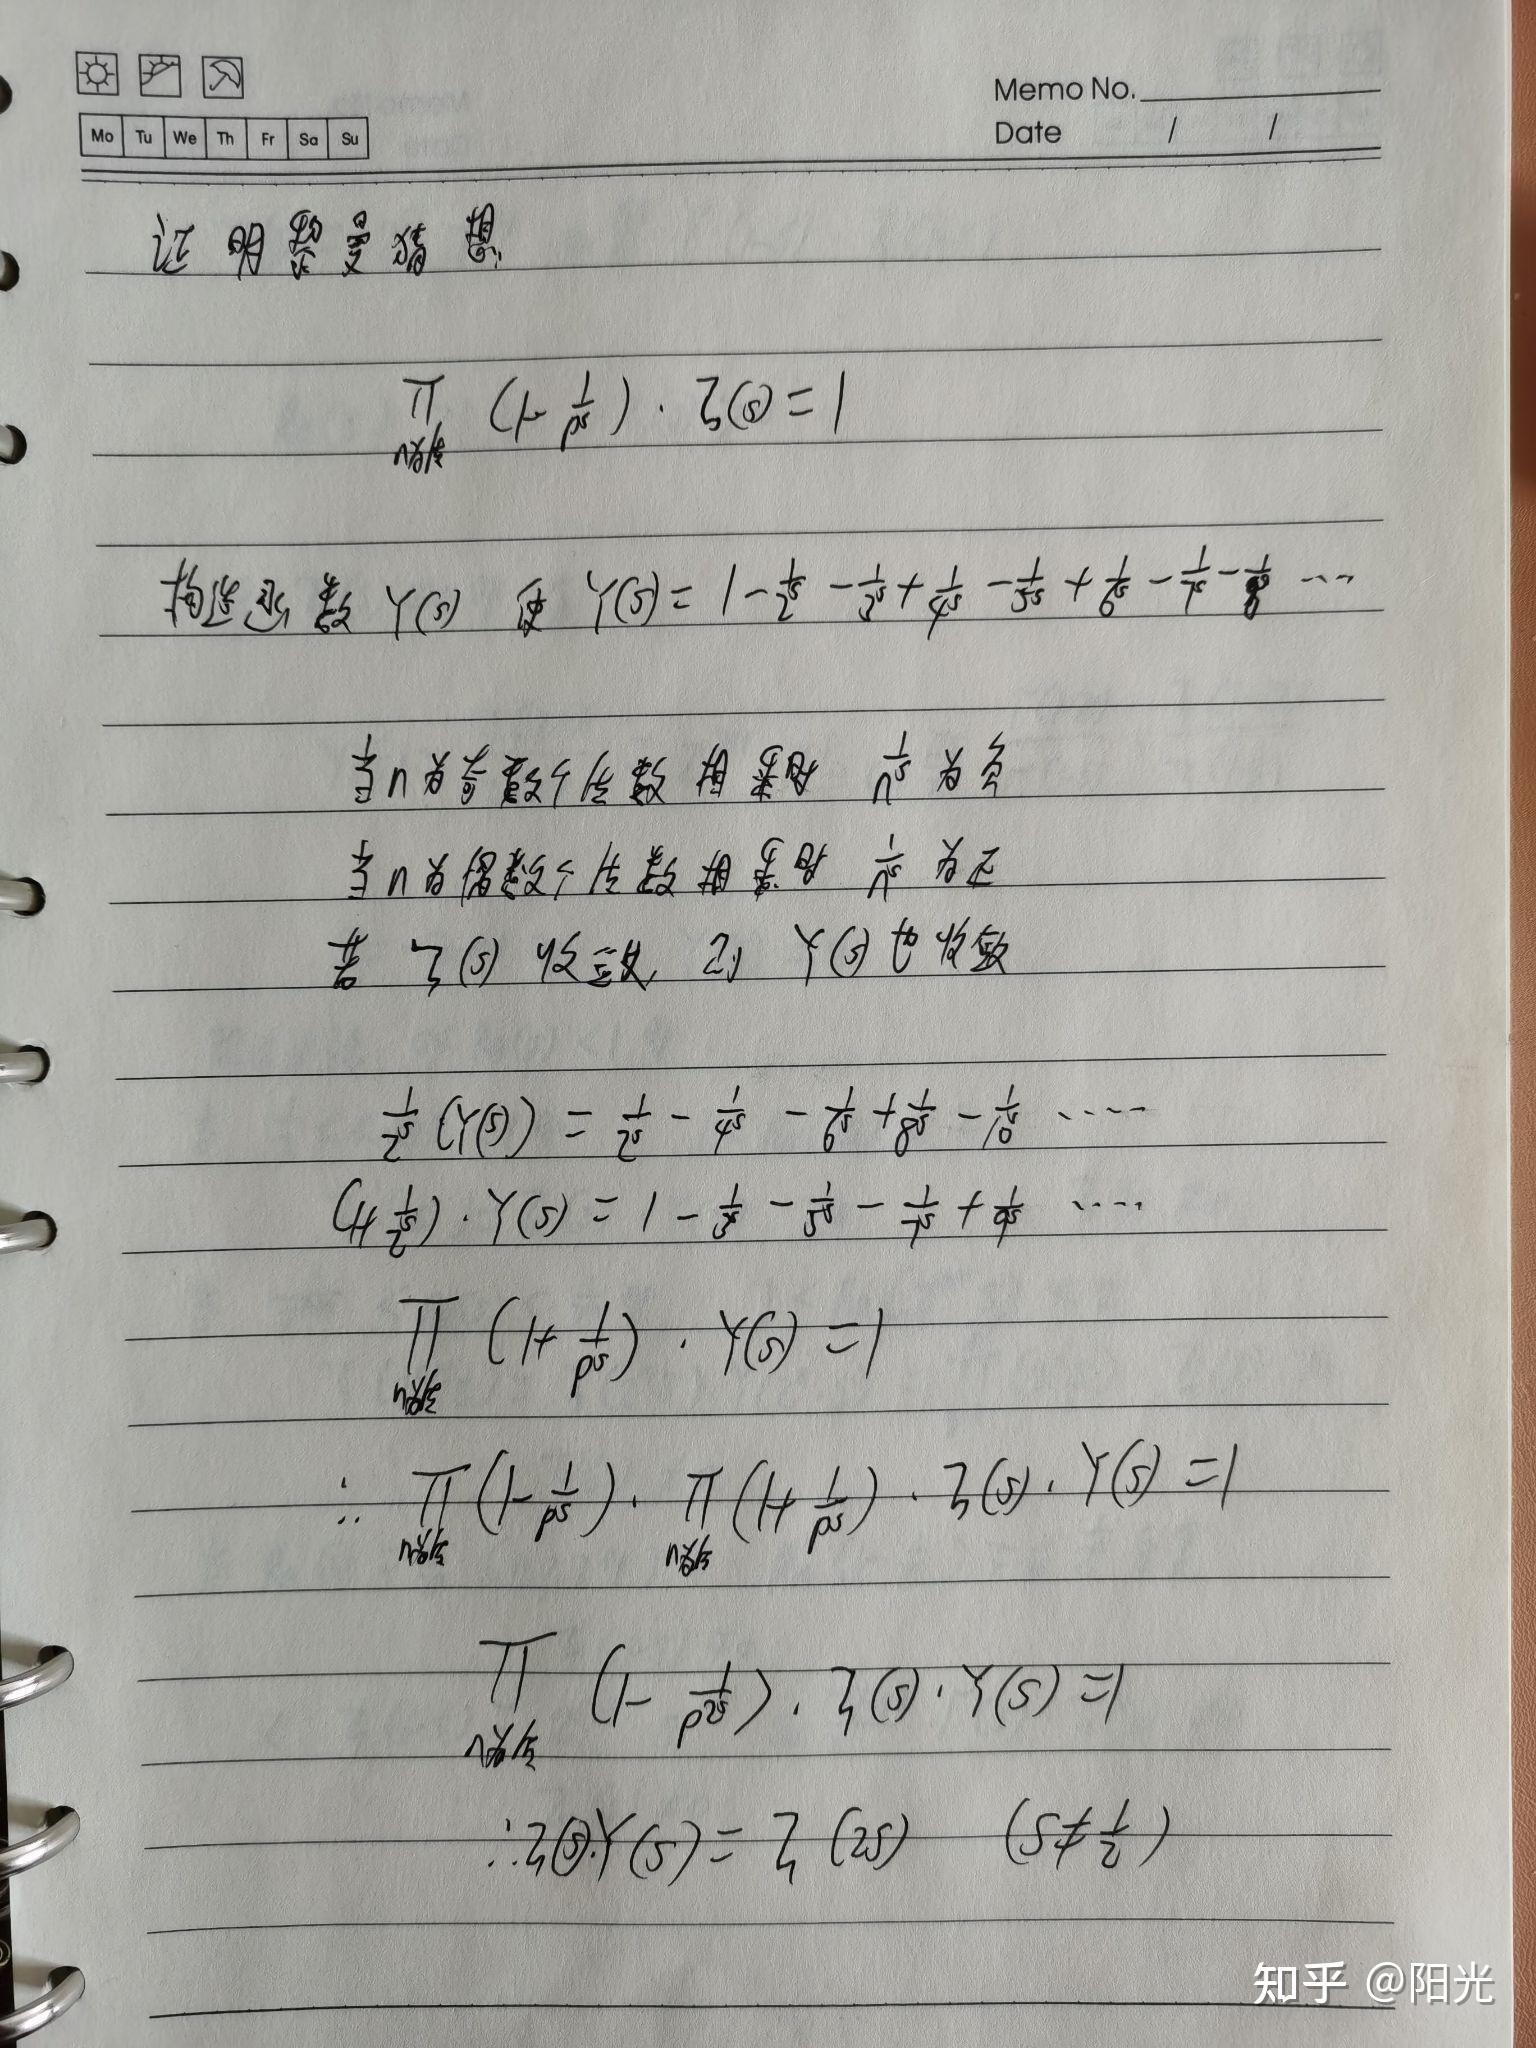 Memo No.
Mo Tu We Th Fr Sa Su
Date / /
证明黎曼猜想
∏ (1-1/p^s)·ζ(s)=1
n为质
构造函数Y(s) 使 Y(s)=1-1/2^s-1/3^s+1/4^s-1/5^s+1/6^s-1/7^s-1/8^s ...
当n为奇数个质数相乘时 1/n^s 为负
当n为偶数个质数相乘时 1/n^s 为正
若 ζ(s) 收敛, 则 Y(s)也收敛
1/2^s (Y(s)) = 1/2^s - 1/4^s - 1/6^s + 1/8^s - 1/10^s ....
(1+1/2^s)·Y(s) = 1 - 1/3^s - 1/5^s - 1/7^s + 1/9^s ....
∏ (1+1/p^s)·Y(s)=1
n为质
∴ ∏(1-1/p^s)·∏(1+1/p^s)·ζ(s)·Y(s)=1
n为质 n为质
∏ (1-1/p^2s)·ζ(s)·Y(s)=1
n为质
∴ζ(s)·Y(s)=ζ(2s) (S≠1/2)
知乎 @阳光